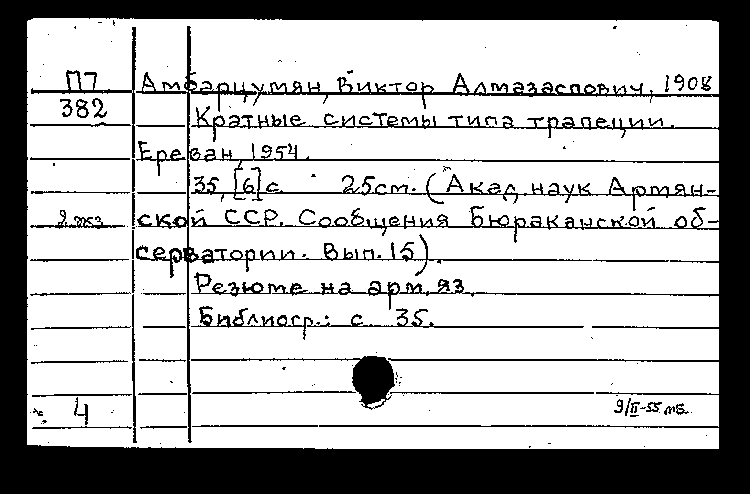 П7 Амбарцумян, Виктор Алмазаспович, 1908
382 Кратные системы типа трапеции.
Ереван, 1954.
35, [6] с. 25см. (Акад. наук Армян-
2 экз ской ССР. Сообщения Бюраканской об-
серватории. Вып. 15).
Резюме на арм. яз.
Библиогр.: с. 35.
4
9/II-55